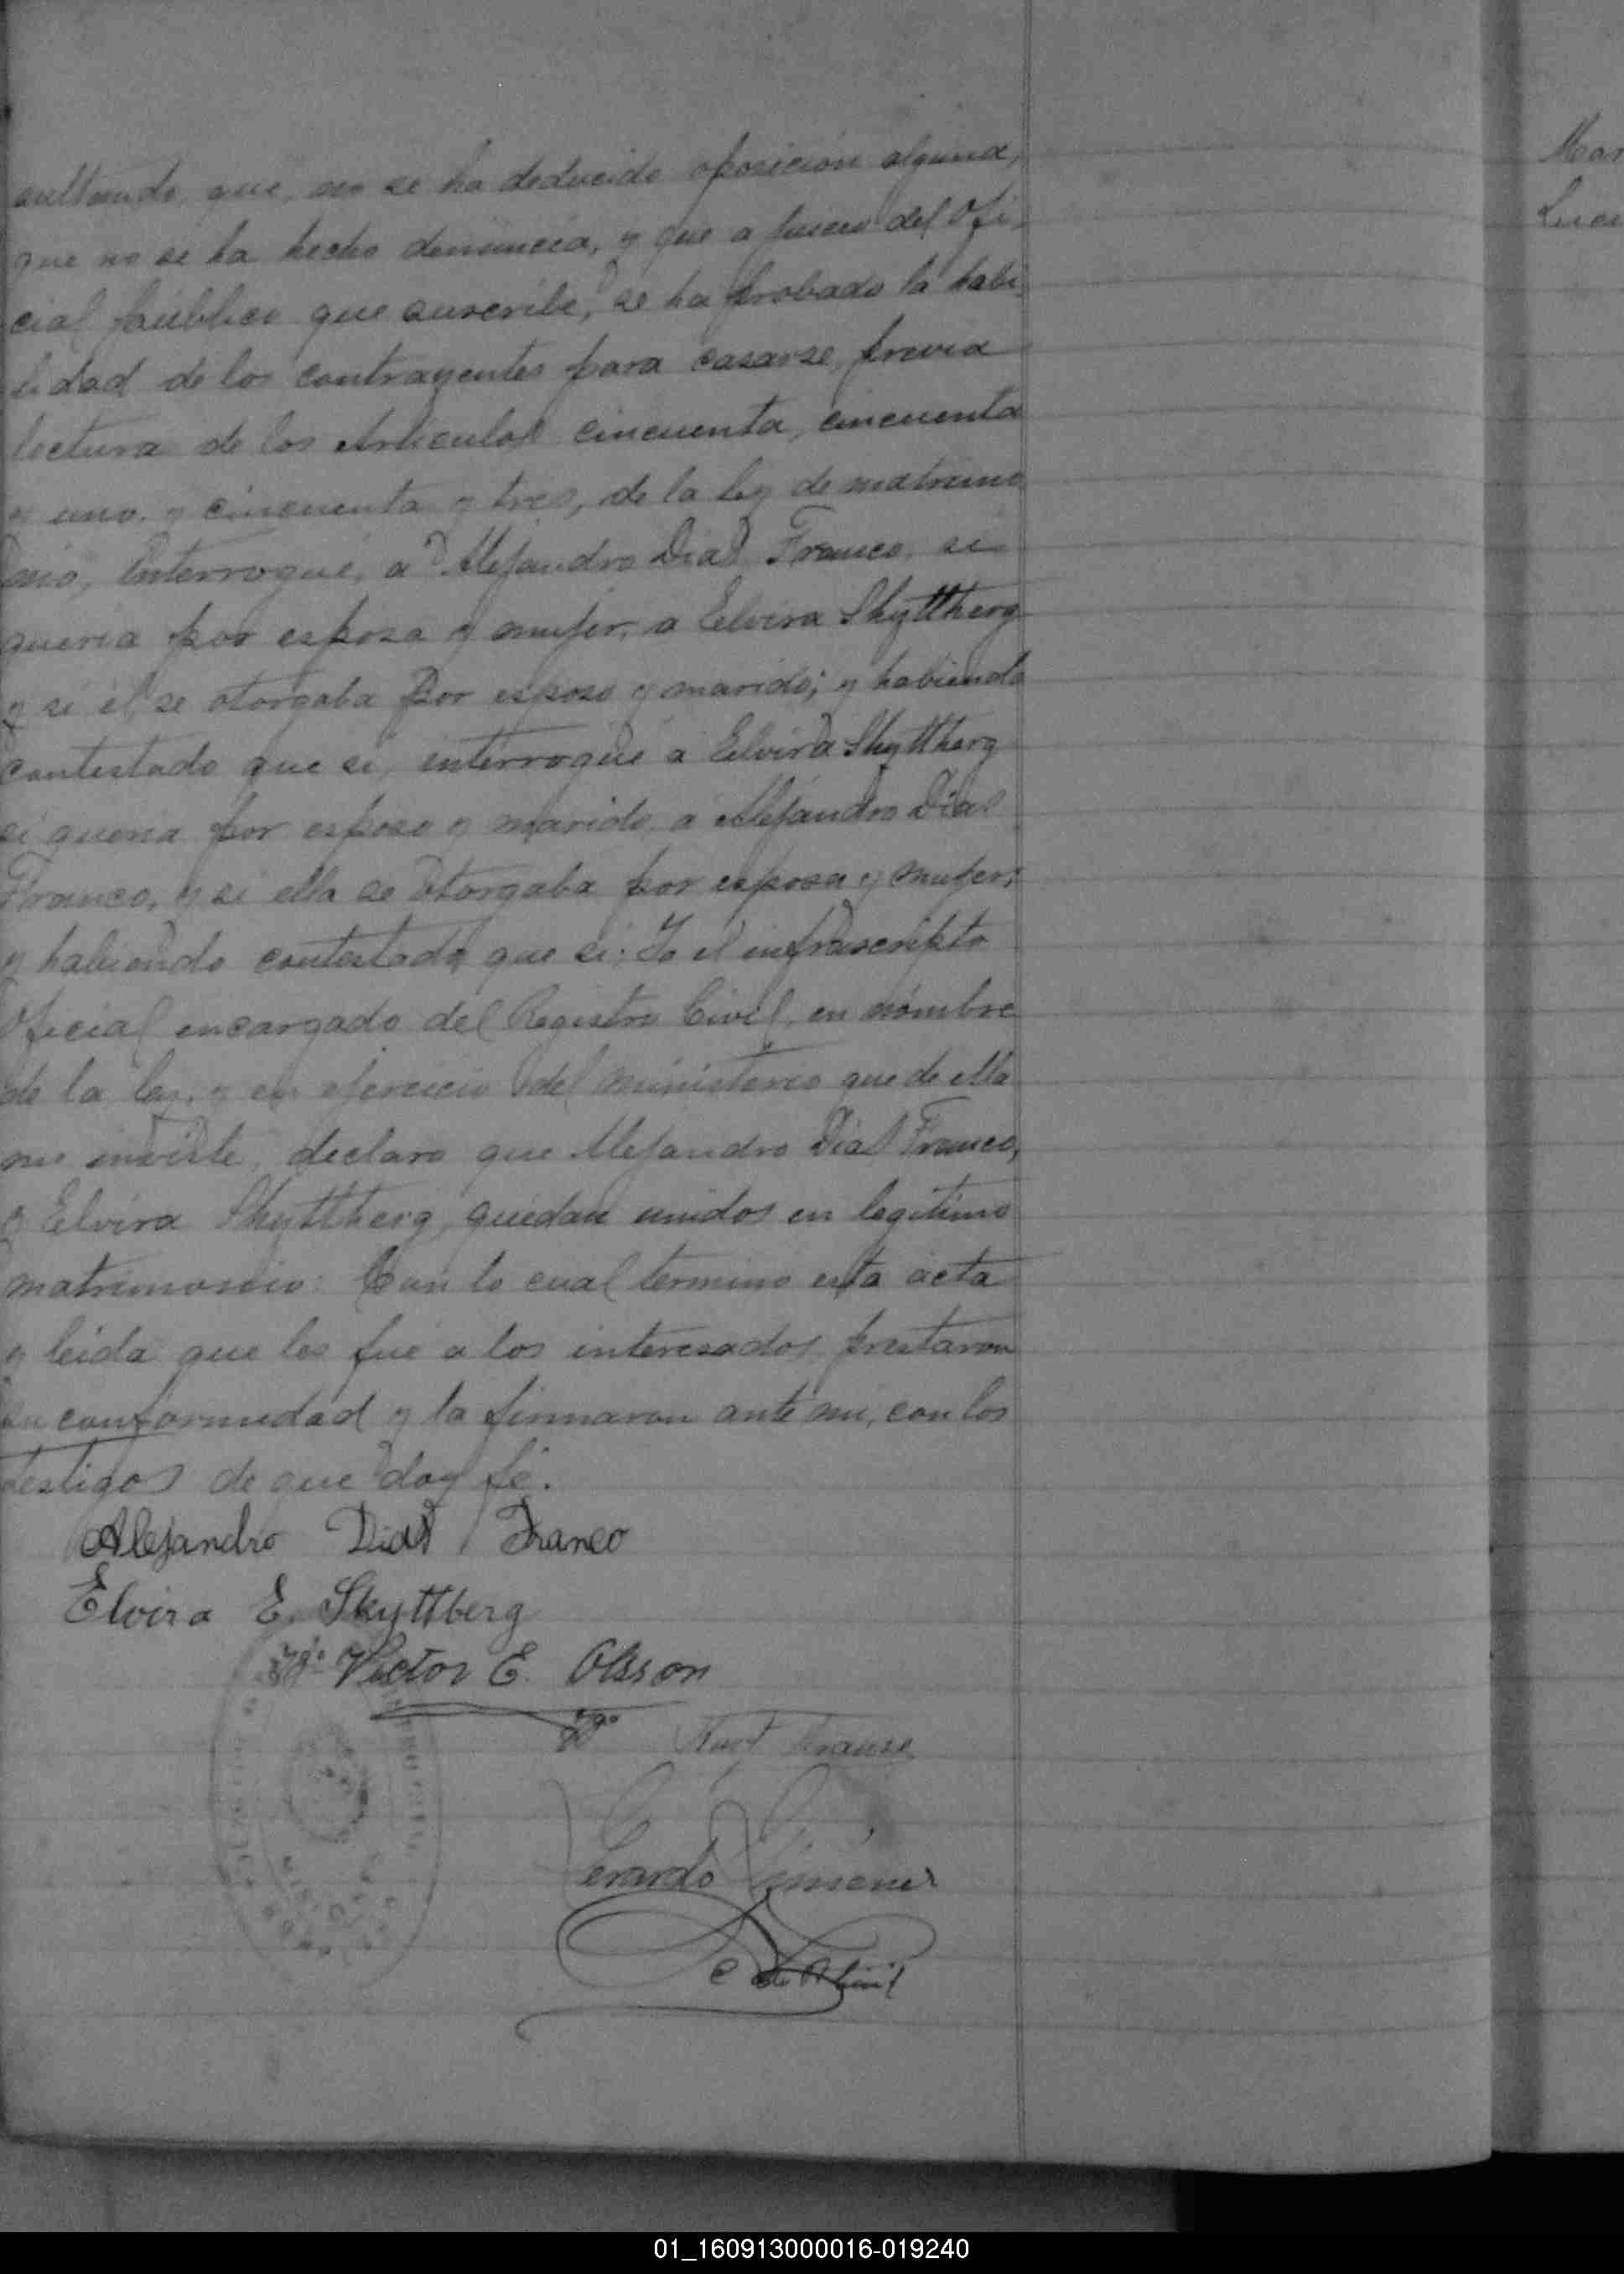 sultando, que, no se ha deducido oposición alguna,
que no se ha hecho denuncia, y que a juicio del Ofi-
cial público que suscribe, se ha probado la habi-
lidad de los contrayentes para casarse, previa
lectura de los Artículos cincuenta, cincuenta
y uno, y cincuenta y tres, de la ley de matrimo
nio, Interrogué, a Alejandro Dias Franco, si
queria por esposa y mujer, a Elvira Skyttberg
y si él se otorgaba por esposo y marido; y habiendo
contestado que si, interrogué a Elvira Skyttberg
si queria por esposo y marido, a Alejandro Dias
Franco, y si ella se otorgaba por esposa y mujer;
y habiendo contestado que si; Yo el infrascripto
Oficial encargado del Registro Civil, en nombre
de la ley, y en ejercicio del ministerio que de ella
me inviste, declaro que Alejandro Dias Franco,
y Elvira Skyttberg, quedan unidos en legítimo
matrimonio: Con lo cual termino esta acta
y leida que les fué a los interesados, prestaron
su conformidad y la firmaron ante mi, con los
testigos de que doy fé.
Alejandro Dias Franco
Elvira E. Skyttberg
Tgo. Victor E. Olsson
Tgo Kurt Krause
Gerardo Gimenez
Mar
Luci
01_160913000016-019240